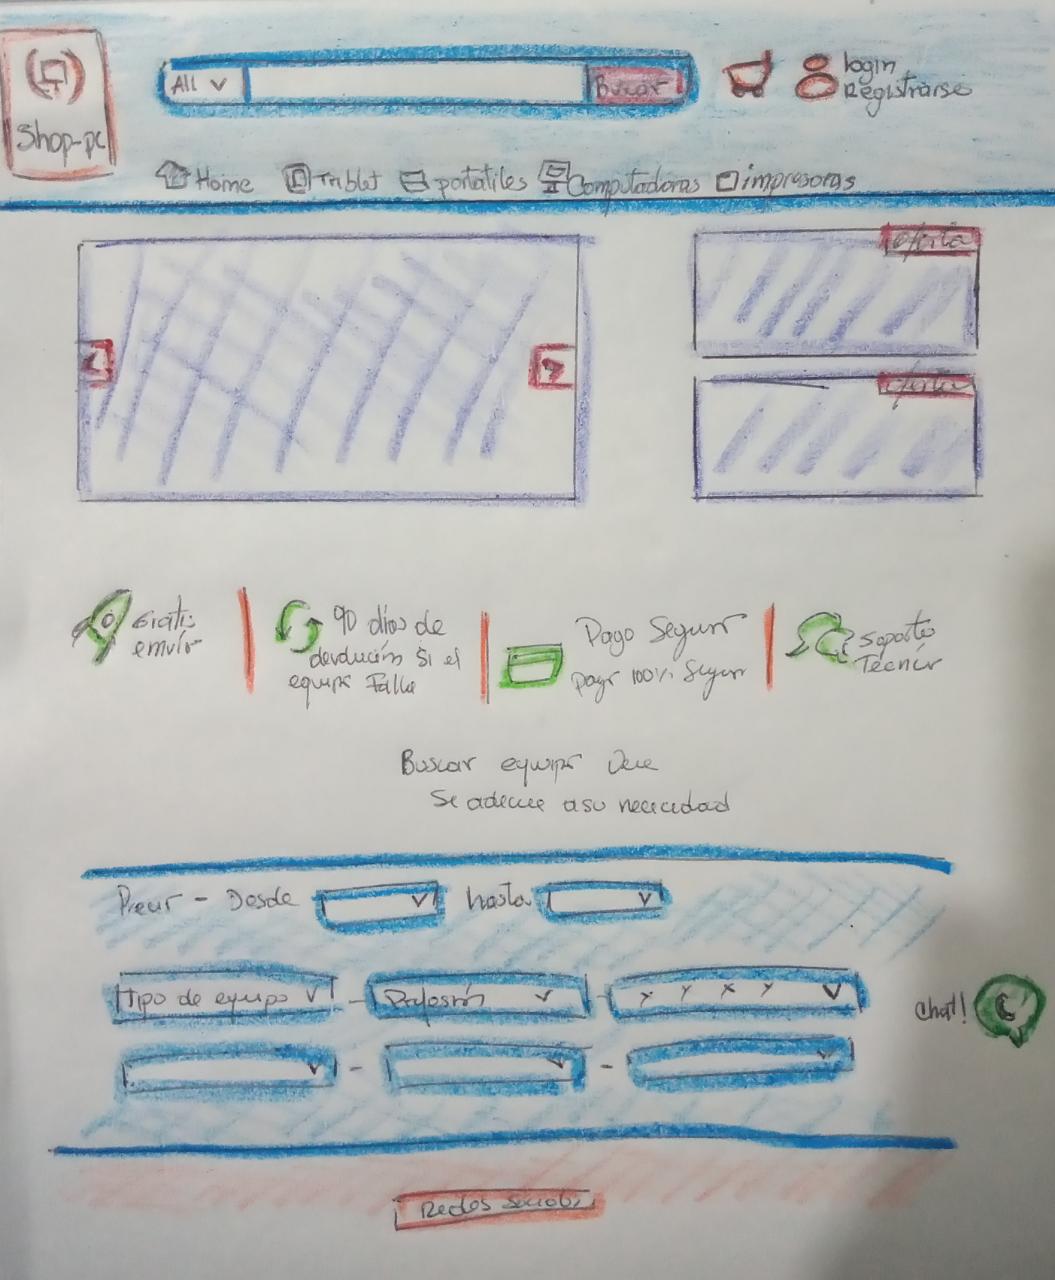 All
Buscar
login
Registrarse
Shop-pc
Home Tablet portatiles Computadoras impresoras
oferta
oferta
Gratis
envío
90 días de
devolución Si el
equipo Falla
Pago Seguro
Pago 100% Seguro
Soporte
Tecnico
Buscar equipo Que
Se adecue a su nececidad
Precio - Desde hasta
Tipo de equipo - Profesión - x y x y
Chat!
Redes social